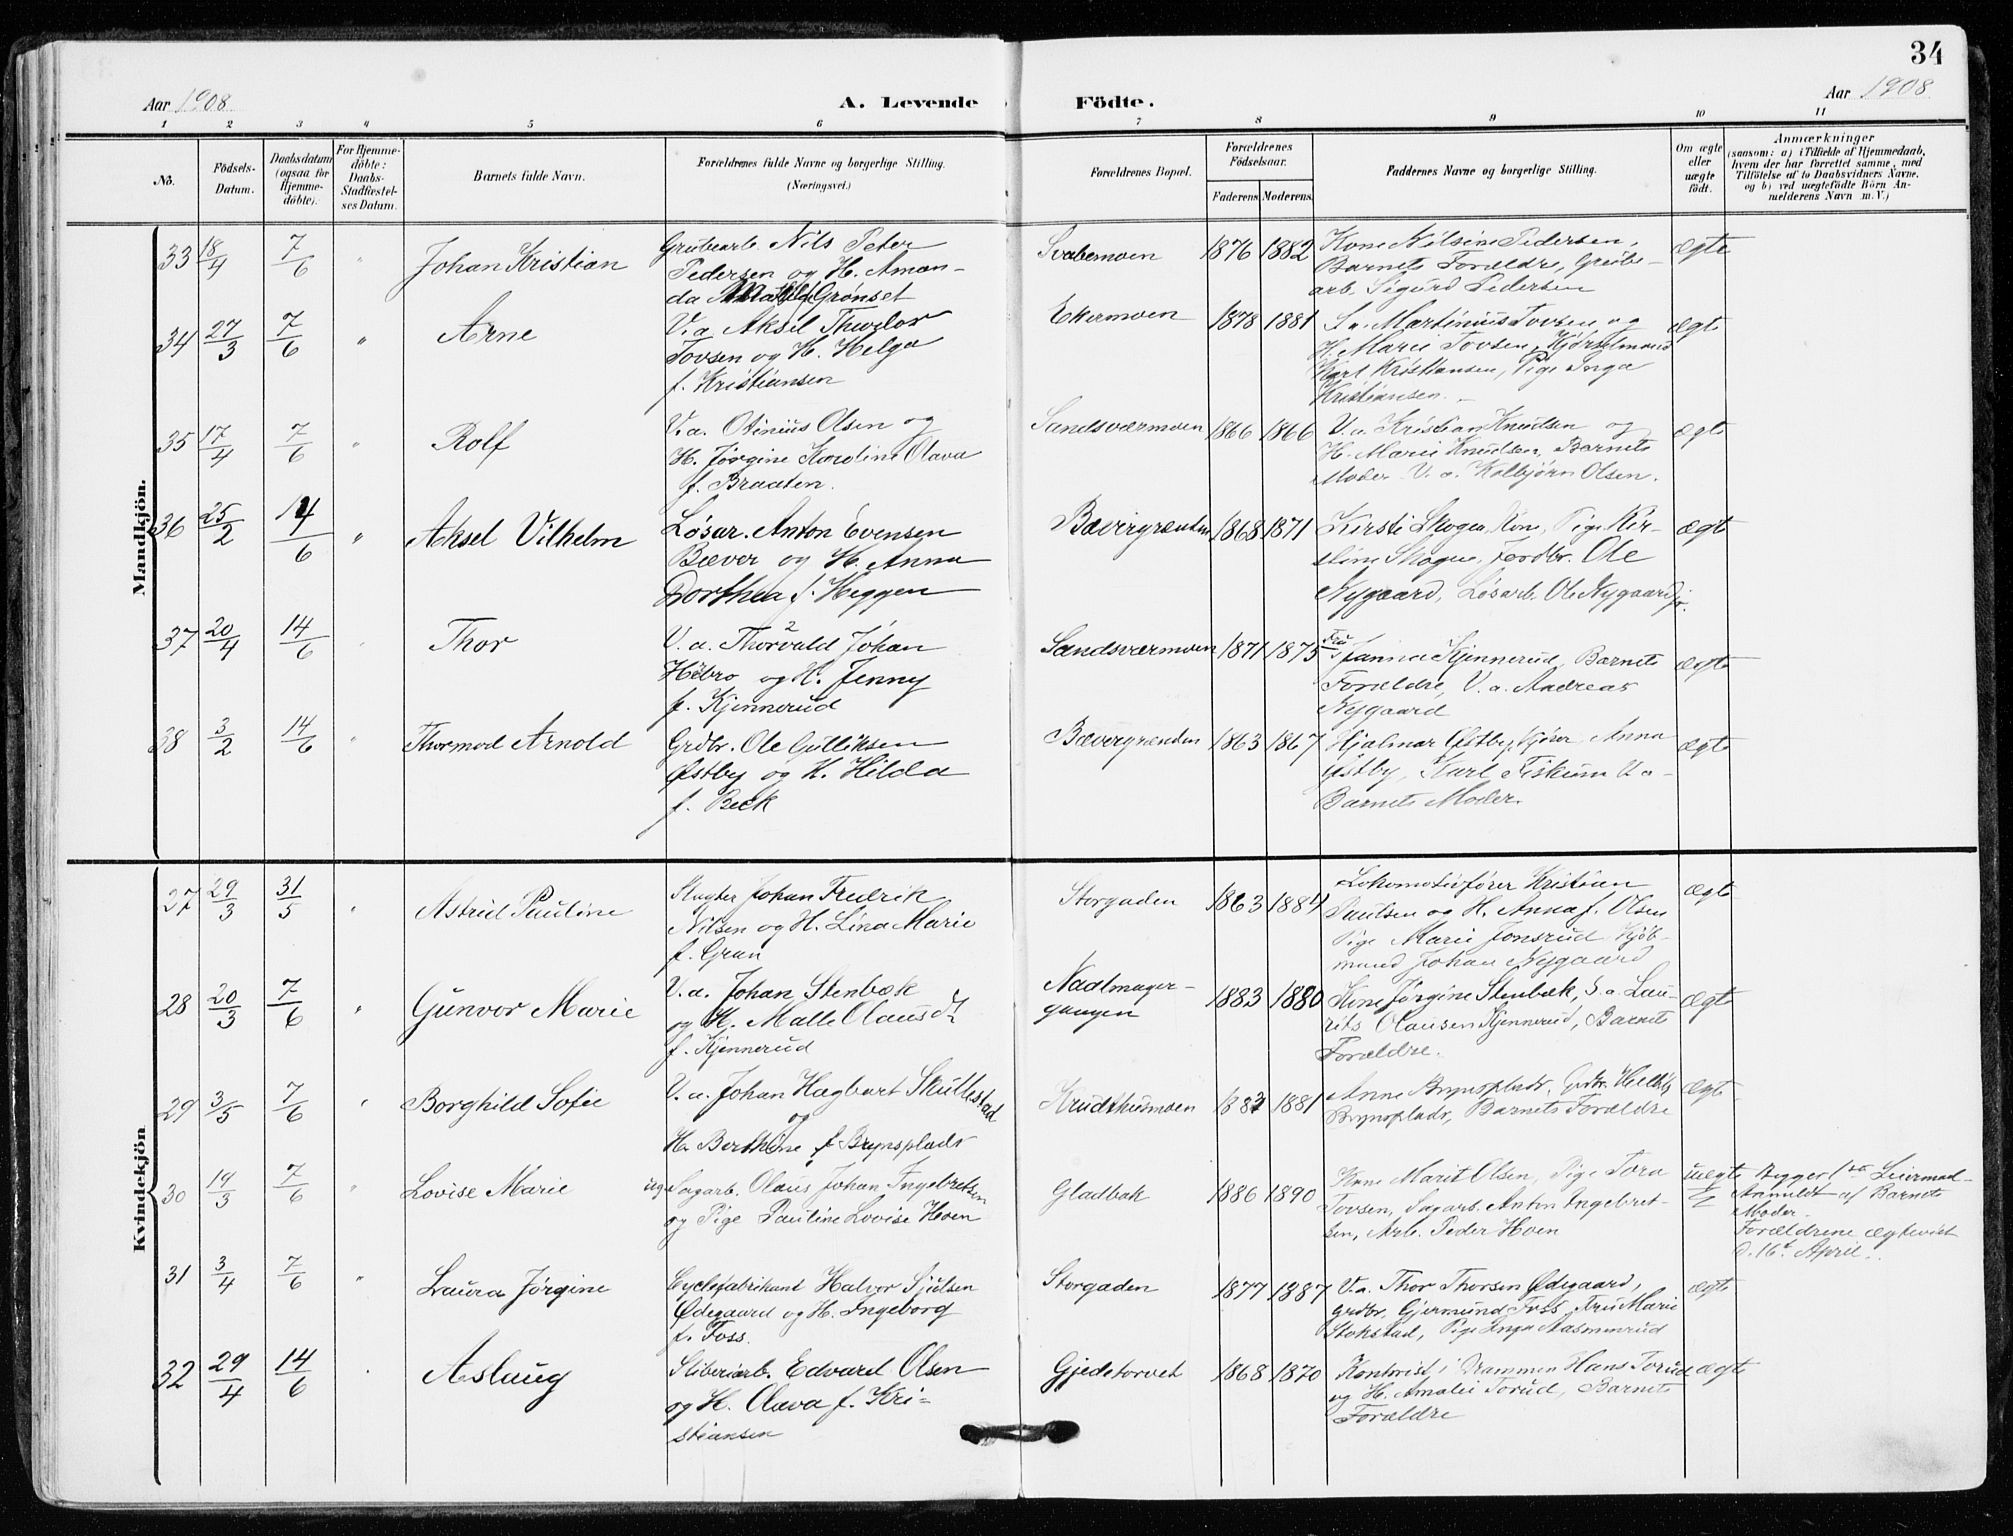 34
Aar 1908
A. Levende
Födte.
Aar 1908
1 2 3 4 5 6 7 8 9 10 11
No.
Födsels-
Datum.
Daabsdatum
(ogsaa for
Hjemme-
döbte).
For Hjemme-
döbte:
Daabs-
Stadfæstel-
ses Datum.
Barnets fulde Navn.
Forældrenes fulde Navne og borgerlige Stilling.
(Næringsvei.)
Forældrenes Bopæl.
Forældrenes
Födselsaar.
Faderens
Moderens.
Faddernes Navne og borgerlige Stilling.
Om ægte
eller
uægte
født.
Anmærkninger
(saasom: a) i Tilfælde af Hjemmedaab,
hvem der har forrettet samme, med
Tilföielse af to Daabsvidners Navne,
og b) ved uægtefödte Börn An-
melderens Navn m. V.)
Mandkjön.
33 18/4 7/6 " Johan Kristian
Grubearb. Nils Peter
Pedersen og H. Aman-
da Grønset
1876 1882
Kone Nilsine Pedersen,
Barnets Forældre, Grube-
arb. Sigurd Pedersen
ægte
34 27/3 7/6 " Arne
V.a. Aksel Thorlov
Tovsen og H. Helga
f. Kristiansen
Ekermoen 1878 1881
S.a. Martinius Tovsen og
H. Marie Tovsen, Kjörselmand
Karl Kristiansen, Pige Inga
Kristiansen.
ægte
35 17/4 7/6 " Rolf
V.a. Otinius Olsen og
H. Jørgine Karoline Olava
f. Braaten.
Sandsværmoen 1866 1866
V.a. Kristian Knudsen og
H. Marie Knudsen, Barnets
Moder V.a. Kolbjørn Olsen.
ægte
36 25/2 14/6 " Aksel Vilhelm
Løsar. Anton Evensen
Bæver og H. Anna
Dorthea f. Heggen
Bævergrænden 1868 1871
Kirsti Skogen, Kone, Pige Kir-
stine Skogen, Jordbr. Ole
Nygaard, Løsarb. Ole Nygaard jr.
ægte
37 20/4 14/6 Thor
V.a. Thorvald Johan
Hibro og H. Jenny
f. Kjennerud
Sandsværmoen 1871 1875
Fru Hanna Kjennerud, Barnets
Forældre, V.a. Andreas
Nygaard
ægte
38 3/2 14/6 " Thormod Arnold
Grdbr. Ole Gulliksen
Østby og H. Hilda
f. Beck
Bævergrænden 1863 1867
Hjalmar Østby, Anna
Østby, Karl Fiskum V.a.
Barnets Moder.
ægte
Kvindekjön
27 29/3 31/5 " Astrid Pauline
Slagter Johan Fredrik
Nilsen og H. Lina Marie
f. Gran
Storgaden 1863 1884
Lokomotivfører Kristian
Paulsen og H. Anna f. Olsen
Pige Marie Jonsrud Kjöb-
mand Johan Nygaard
ægte
28 20/3 7/6 " Gunvor Marie
V.a. Johan Stenbæk
og H. Malle Olausdt.
f. Kjennerud
Nadlmager-
gangen
1883 1880
Kone Jørgine Stenbæk, S.a. Lau-
rits Olausen Kjennerud, Barnets
Forældre.
ægte
29 3/5 7/6 " Borghild Sofie
V.a. Johan Hagbart Skullestad
og
H. Berthine f. Brynsplads
Krudthusmoen 1881
Anne Brynsplads, Grdbr.
Brynsplads, Barnets Forældre
ægte
30 19/3 7/6 " Lovise Marie
ug. Sagarb. Olaus Johan Ingebretsen
og Pige Pauline Lovise Hoen
Gladbak 1886 1890
Kone Marit Olsen, Pige Tora
Tovsen, Sagarb. Anton Ingebret-
sen, Arb. Peder Hoen
uægte
Begges 1ste Leiermaal
Anmeldt af Barnets
Moder.
Forældrene ægteviet
d. 16t April.
31 3/4 7/6 " Laura Jørgine
Cyclefabrikant Halvor Sjulsen
Ødegaard og H. Ingeborg
f. Foss.
Storgaden 1877 1887
V.a. Thor Thorsen Ødegaard,
grdbr. Gjermund Foss, Fru Marie
Stokstad, Pige Inga Aasmunrud
ægte
32 29/4 14/6 Aslaug
Sliberiarb. Edvard Olsen
og H. Olava f. Kri-
stiansen
Gjedetorvet 1868 1870
Kontorist i Drammen Hans Torud
og H. Amalie Torud, Barnets
Forældre
ægte